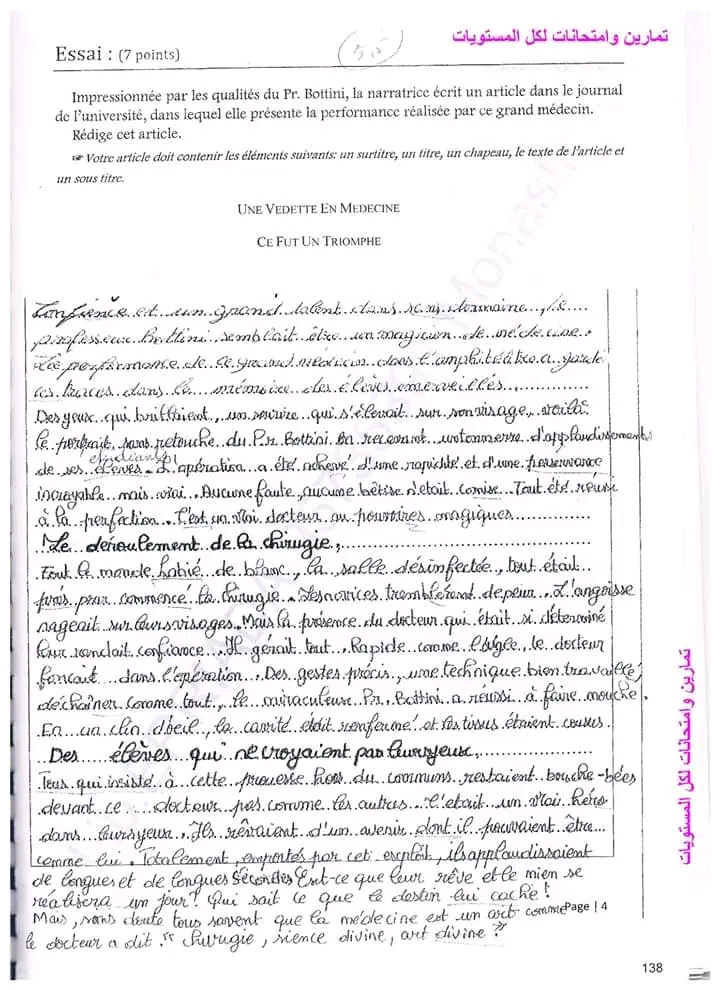 تمارين وامتحانات لكل المستويات
Essai : (7 points)
Impressionnée par les qualités du Pr. Bottini, la narratrice écrit un article dans le journal
de l'université, dans lequel elle présente la performance réalisée par ce grand médecin.
Rédige cet article.
☞ Votre article doit contenir les éléments suivants: un surtitre, un titre, un chapeau, le texte de l'article et
un sous titre.
UNE VEDETTE EN MEDECINE
CE FUT UN TRIOMPHE
et un grand talent dans sons domaine, le
professeur Bottini semblait être un magicien de médecine.
La performance de ce grand médecin dans l'amphitéâtre a gardé
ces traces dans la mémoire des élèves émerveillés
Des yeux qui brillaient, un sourire qui s'élevait sur son visage, voilà
le portrait sans retouche du Pr. Bottini en recevant un tonnerre d'applaudissements
étudiants
de ses élèves. L'opération a été achevé d'une rapidité et d'une
incroyable mais vrai. Aucune faute, aucune bêtise n'était comise. Tout été réussi
à la perfection. C'est un vrai docteur au pouvoires magiques
Le déroulement de la chirugie,
Tout le monde habié de blanc, la salle désinfectée, tout était
près pour commencé la chirugie. Les novices tremblerent de peur. L'angoisse
nageait sur leurs visages. Mais la présence du docteur qui était si déterminé
leur rendait confiance. Il gérait tout. Rapide comme l'éugée, le docteur
fonçait dans l'opération. Des gestes précis, une technique bien travaillé,
déchaîner comme tout, le miraculeuse Pr. Bottini a réussi à faire mouche.
En un clin d'œil, la cavité était renfermé et les tissus étaient cousus.
Des élèves qui ne croyaient pas leurs yeux,
Tous qui insisté à cette prouesse hors du communs restaient bouche-bées
devant ce docteur pas comme les autres. C'était un vrai héro
dans leurs yeux. Ils rêvaient d'un avenir dont il pouvaient être
comme lui. Totalement, emportés par cet exploit, ils applaudissaient
de longues et de longues secondes Est-ce que leur rêve et le mien se
réalisera un jour? Qui sait ce que le destin lui cache!
Mais, sans doute tous savent que la médecine est un art comme
Page | 4
le docteur a dit "chirugie, sience divine, art divine"
138
تمارين وامتحانات لكل المستويات